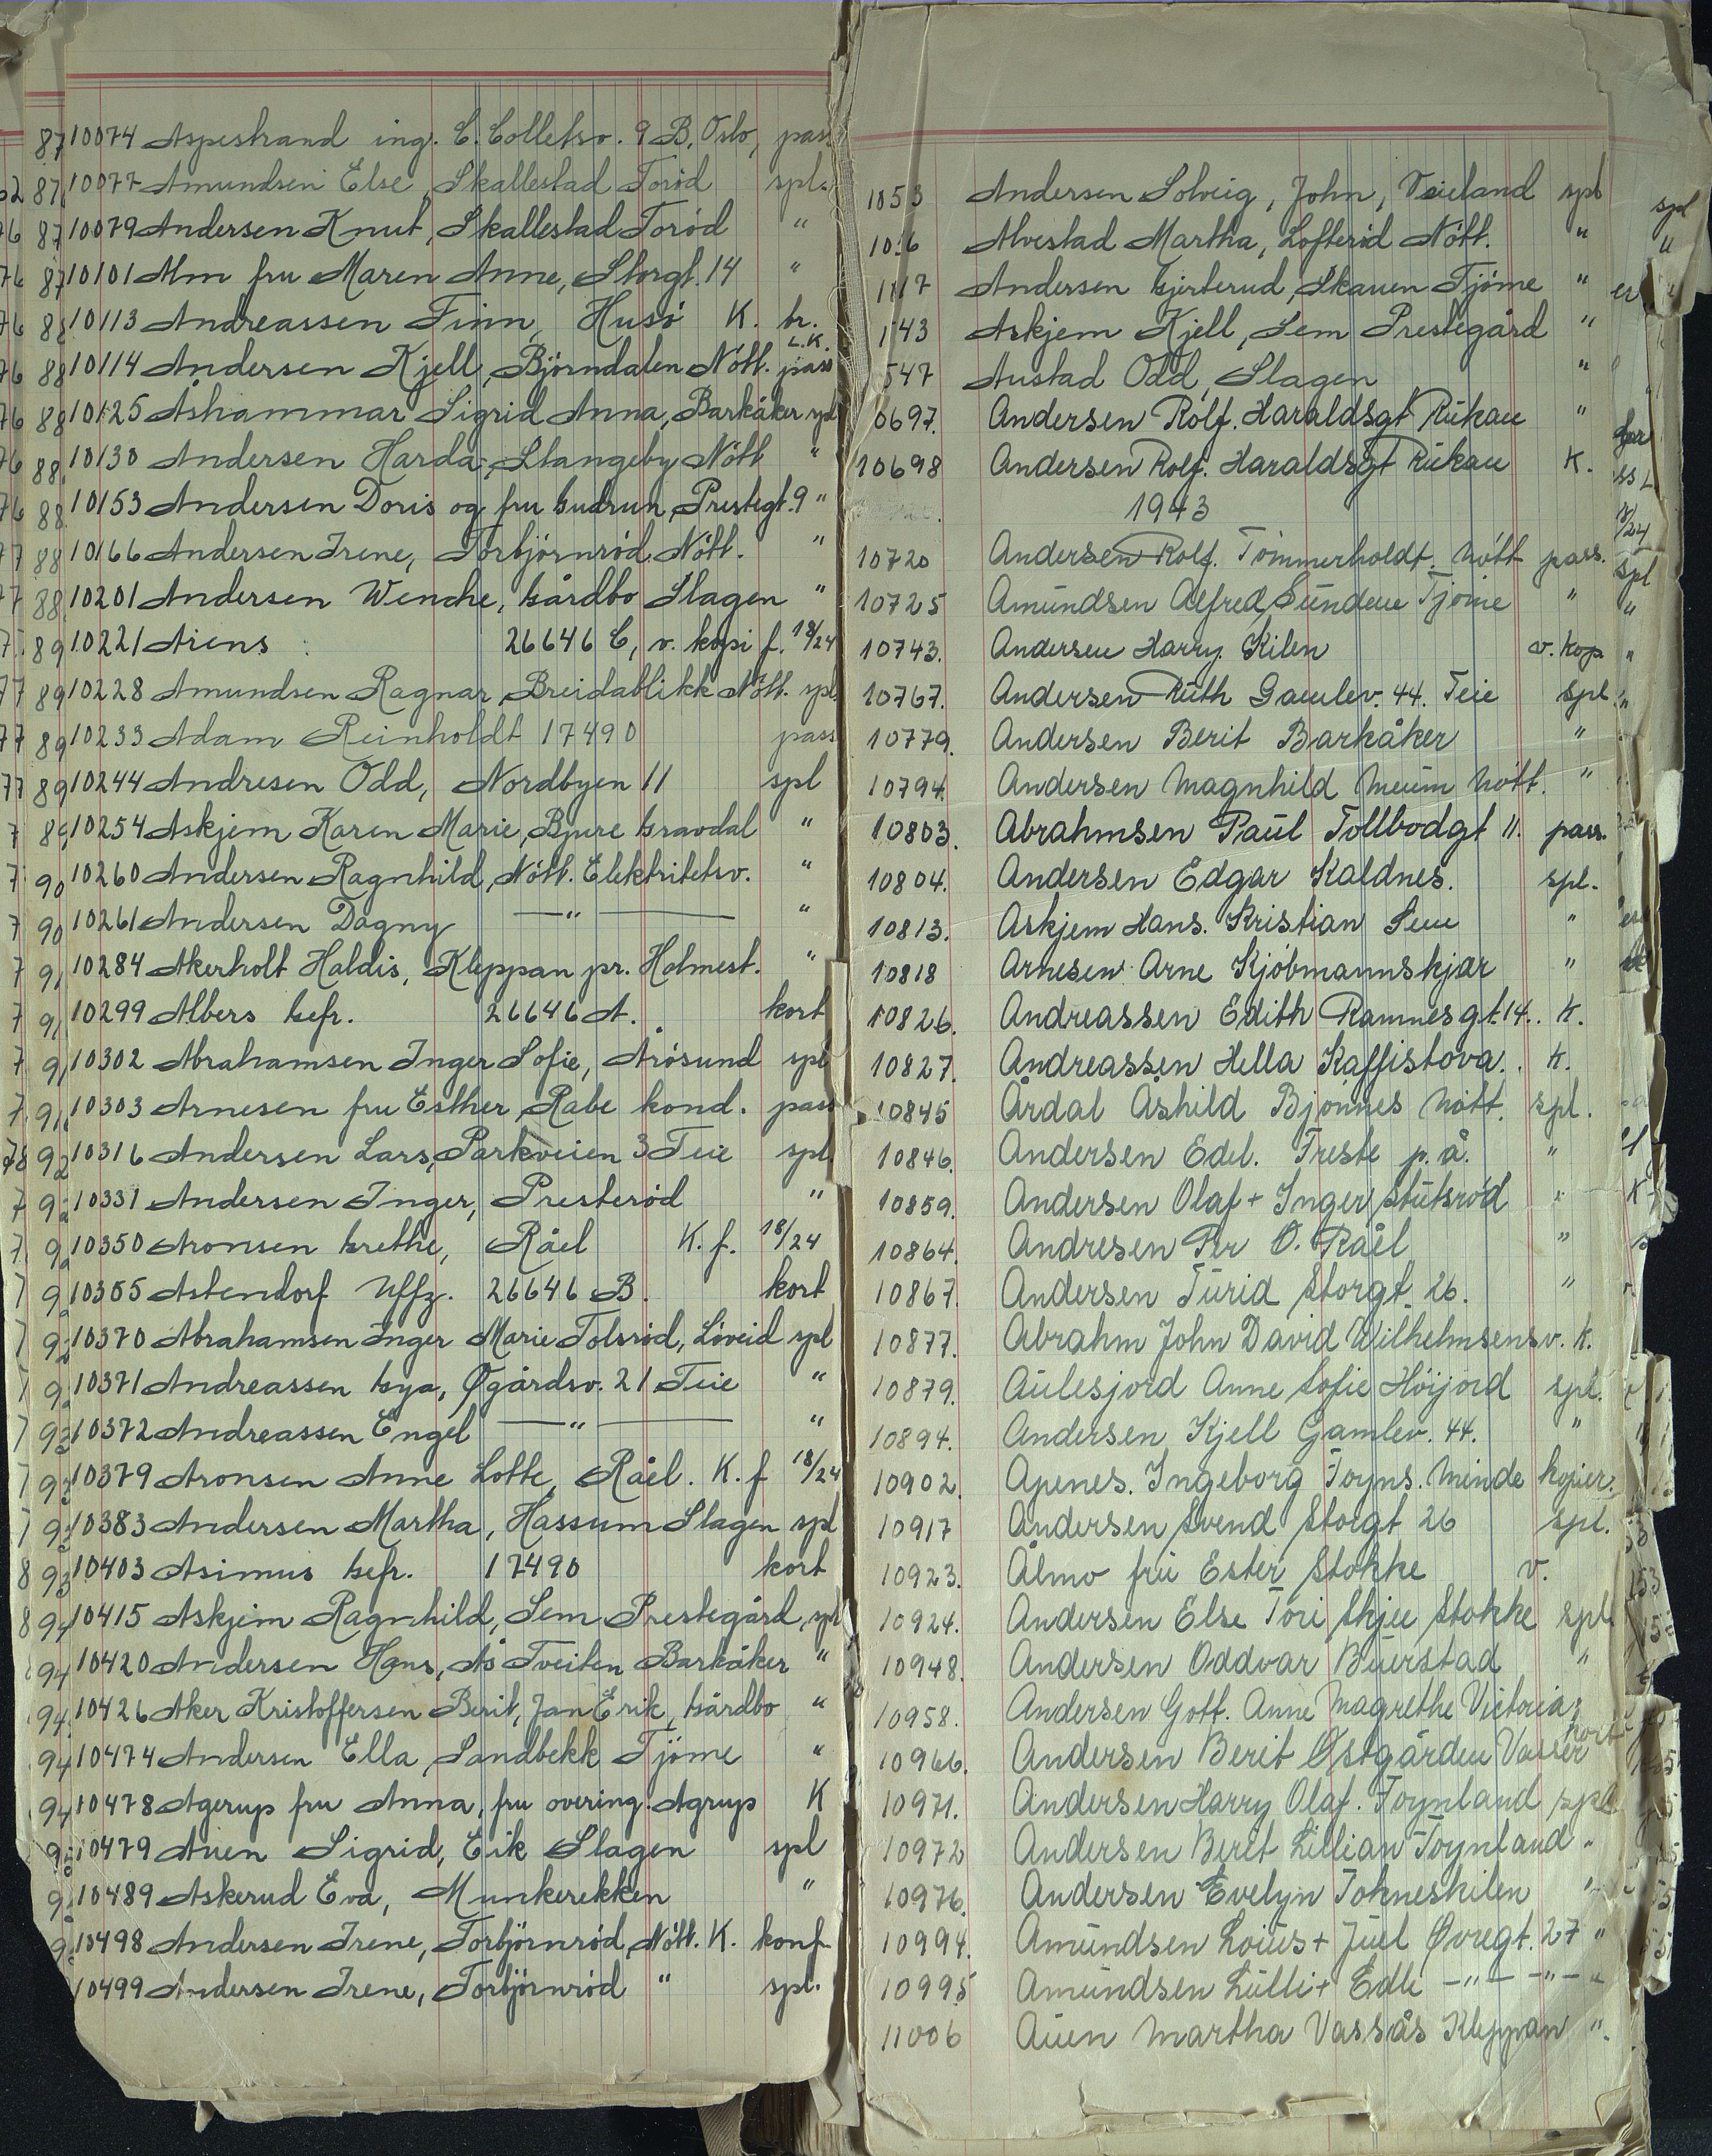 10074 Aspestrand ing. C. Colletsv. 9 B, Oslo, pass
10077 Amundsen Else, Skallestad Torød spl.
10079 Andersen Knut, Skallestad Torød "
10101 Alm fru Maren Anne, Storgt. 14 "
10113 Andreassen Finn, Husö K. br.
10114 Andersen Kjell, Björndalen Nött. L.K. pass
10125 Åshammar Sigrid Anna, Barkåker spl
10130 Andersen Harda, Stangeby Nött "
10153 Andersen Doris og fru Gudrun, Prestegt. 9 "
10166 Andersen Irene, Torbjörnrød Nött. "
10201 Andersen Wenche, Gårdbo Slagen "
10221 Ariens 26646 C, v. kopi f. 18/24
10228 Amundsen Ragnar, Breidablikk Nött. spl
10233 Adam Reinholdt 17490 pass
10244 Andresen Odd, Nordbyen 11 spl
10254 Askjem Karen Marie, Bjure Gravdal "
10260 Andersen Ragnhild, Nött. Elektritetsv. "
10261 Andersen Dagny — " — "
10284 Akerholt Haldis, Kleppan pr. Holmest. "
10299 Albers Gefr. 26646 A. kort
10302 Abrahamsen Inger Sofie, Arösund spl
10303 Arnesen fru Esther, Rabe kond. pass
10316 Andersen Lars, Parkveien 3 Teie spl
10331 Andersen Inger, Presterød "
10350 Aronsen Grethe, Råel K. f. 18/24
10365 Astendorf Uffz. 26646 B. kort
10370 Abrahamsen Inger Marie Tolsrød, Löveid spl
10371 Andreassen Gya, Øgårdsv. 21 Teie "
10372 Andreassen Engel — " — "
10379 Aronsen Anne Lotte, Råel. K. f 18/24
10383 Andersen Martha, Hassum Slagen spl
10403 Asimus Gefr. 17490 kort
10415 Askjem Ragnhild, Sem Prestegård, spl
10420 Andersen Hans, Ås Tveiten Barkåker "
10426 Aker Kristoffersen Berit, Jan Erik, Gårdbo "
10474 Andersen Ella Sandbekk Tjöme "
10478 Agerup fru Anna, fru overing. Agrup K
10479 Auen Sigrid, Eik Slagen spl
10489 Askerud Eva, Munkerekken "
10498 Andersen Irene, Torbjörnrød, Nött. K. konf
10499 Andersen Irene, Torbjörnrød " spl.
1053 Andersen Solveig, John, Veieland spl
Alvestad Martha, Lofterød Nött. "
Andersen Gjerterud, Skauen Tjöme "
Askjem Kjell, Sem Prestegård "
547 Austad Odd, Slagen "
0697. Andersen Rolf. Haraldsgt Rukau "
10698 Andersen Rolf. Haraldsgt Rukau K.
1943
10720 Andersen Rolf. Tömmerholdt. Nött pass.
10725 Amundsen Alfred, Sundene Tjöme "
10743. Andersen Harry. Kilen v. kop
10767. Andersen Ruth Gamlev. 44. Teie spl.
10779. Andersen Berit Barkåker "
10794. Andersen Magnhild Meum Nött. "
10803. Abrahmsen Paul Tollbodgt 11. pass.
10804. Andersen Edgar Kaldnes. spl.
10813. Askjem Hans. Kristian Sem "
10818 Arnesen Arne Kjöbmannskjær "
10826. Andreassen Edith Ramnesgt. 14. K.
10827. Andreassen Hella Kaffistova. K.
10845 Årdal Åshild Bjönnes Nött. spl.
10846. Andersen Edel. Treste p. å. "
10859. Andersen Olaf + Inger Stutsrød "
10864. Andresen Per O. Råel "
10867. Andersen Turid Storgt 26. "
10877. Abrahm John David Wilhelmsensv. K.
10879. Aulesjord Anne Sofie Höijord spl.
10894. Andersen Kjell Gamlev. 44. "
10902. Apenes. Ingeborg Foyns. Minde kopier.
10917 Andersen Svend Storgt 26 spl.
10923. Ålmo fru Ester Stokke v.
10924. Andersen Else Tori Skjee Stokke spl.
10948. Andersen Oddvar Buerstad "
10958. Andersen Gott. Anne Magrethe Victoriag kort
10966. Andersen Berit Østgården Vasser
10971. Andersen Harry Olaf. Foynland spl
10972 Andersen Berit Lillian Foynland "
10976. Andersen Evelyn Tokneskilen "
10994. Amundsen Louis + Juel Øvregt. 27 "
10995 Amundsen Lulli + Edle — " — — " — "
11006 Auen Martha Vassås Kleppan "